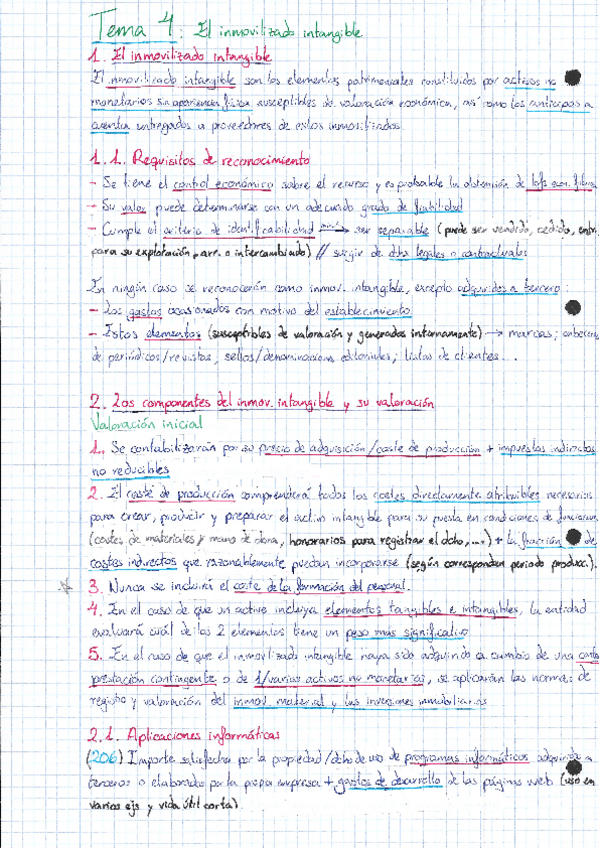 Tema 4: El inmovilizado intangible
1. El inmovilizado intangible
El inmovilizado intangible son los elementos patrimoniales constituidos por activos no
monetarios sin apariencia física susceptibles de valoración económica, así como los anticipos a
cuenta entregados a proveedores de estos inmovilizados.
1.1. Requisitos de reconocimiento
- Se tiene el control económico sobre el recurso y es probable la obtención de bfs econ. futuros
- Su valor puede determinarse con un adecuado grado de fiabilidad
- Cumple el criterio de identificabilidad → ser separable (puede ser vendido, cedido, entr.
para su explotación, arr. o intercambiado) // surgir de dchos legales o contractuales
En ningún caso se reconocerán como inmov. intangible, excepto adquiridos a terceros:
- Los gastos ocasionados con motivo del establecimiento
- Estos elementos (susceptibles de valoración y generados internamente) → marcas; cabeceras
de periódicos/revistas; sellos/denominaciones editoriales; listas de clientes...
2. Los componentes del inmov. intangible y su valoración
Valoración inicial
1. Se contabilizarán por su precio de adquisición/coste de producción + impuestos indirectos
no reducibles
2. El coste de producción comprenderá todos los costes directamente atribuibles necesarios
para crear, producir y preparar el activo intangible para su puesta en condiciones de funcionam.
(costes de materiales y mano de obra, honorarios para registrar el dcho, ...) + la fracción de
costes indirectos que razonablemente puedan incorporarse (según correspondan periodo producc.).
3. Nunca se incluirá el coste de la formación del personal.
4. En el caso de que un active incluya elementos tangibles e intangibles, la entidad
evaluará cuál de los 2 elementos tiene un peso más significativo
5. En el caso de que el inmovilizado intangible haya sido adquirido a cambio de una contra
prestación contingente o de 1/varios activos no monetarios, se aplicarán las normas de
registro y valoración del inmov. material y las inversiones inmobiliarias
2.1. Aplicaciones informáticas
(206) Importe satisfecho por la propiedad/dcho de uso de programas informáticos adquiridos a
terceros o elaborados por la propia empresa + gastos de desarrollo de las páginas web (uso en
varios ejs y vida útil corta).